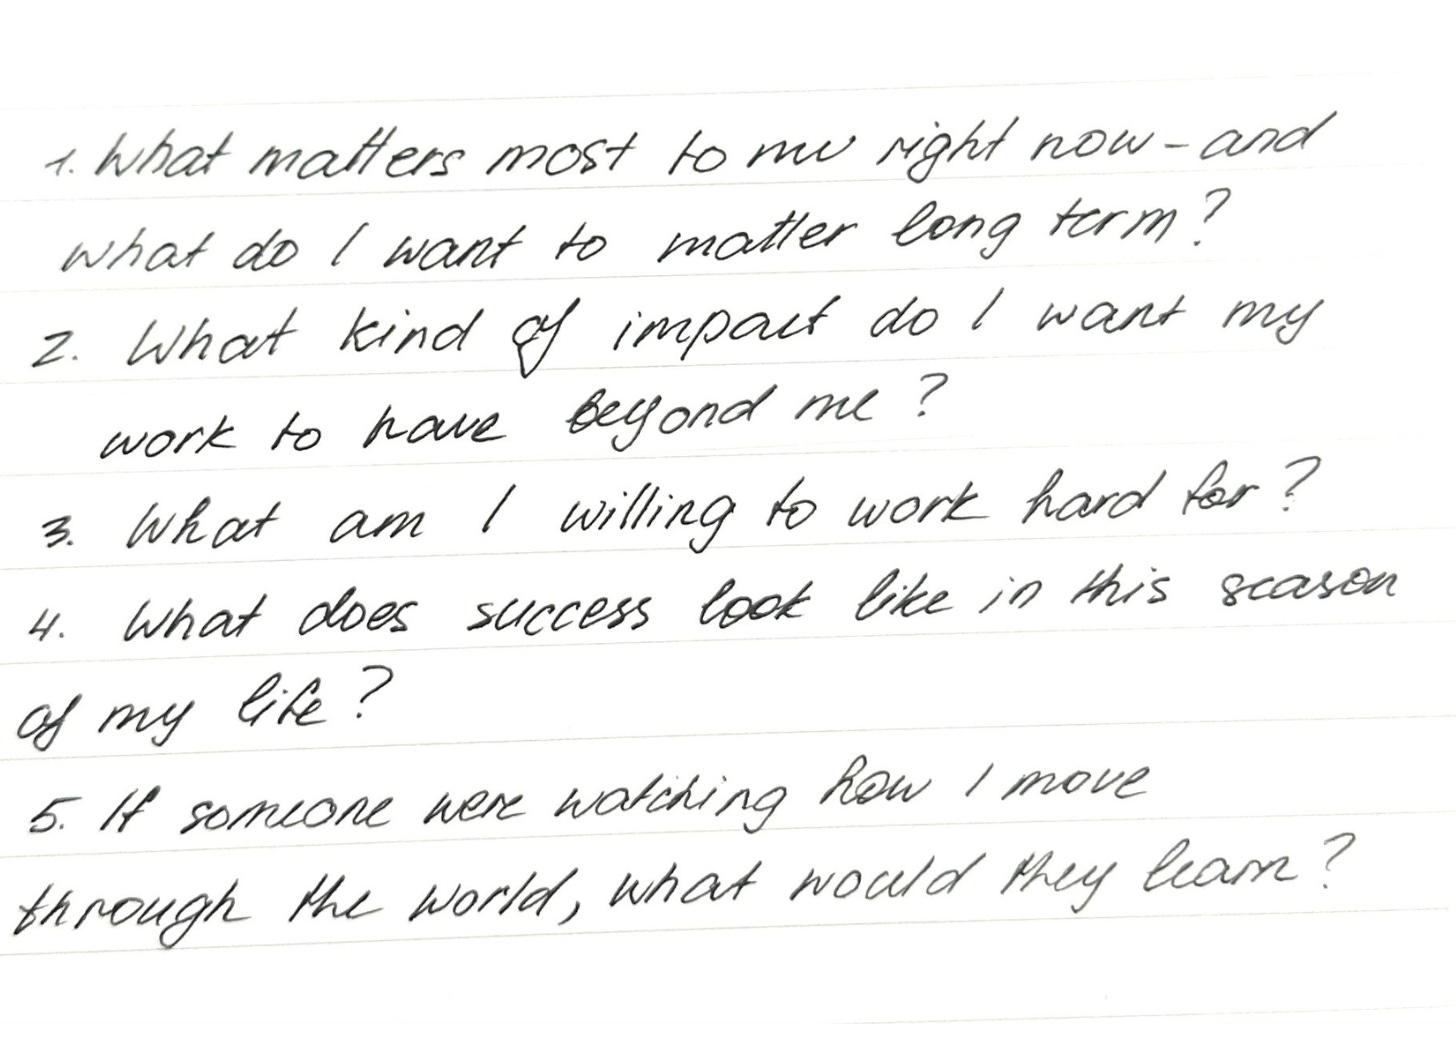 1. What matters most to me right now - and
what do I want to matter long term?
2. What kind of impact do I want my
work to have beyond me?
3. What am I willing to work hard for?
4. What does success look like in this season
of my life?
5. If someone were watching how I move
through the world, what would they learn?